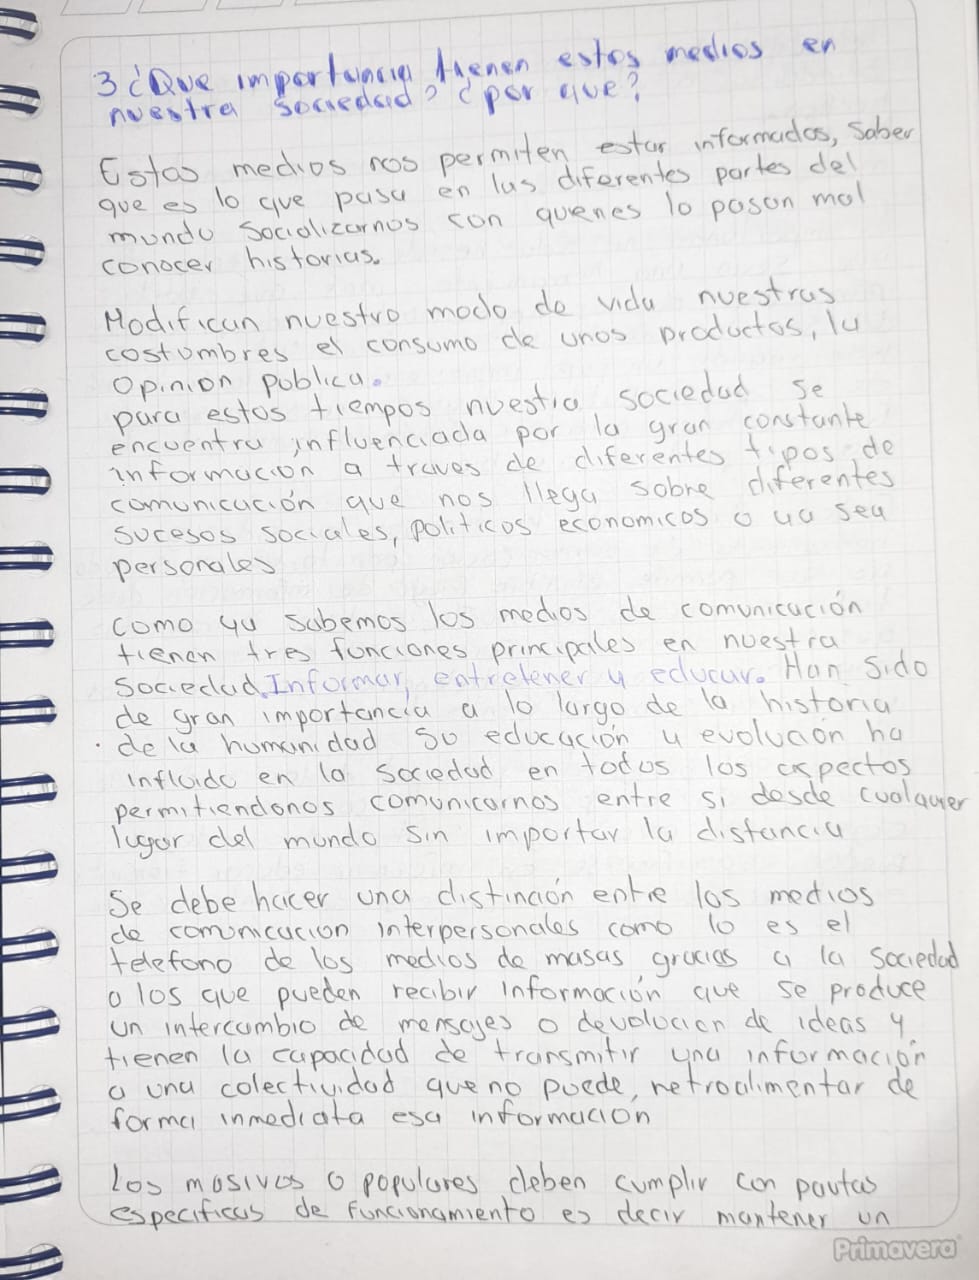 3 ¿Que importancia tienen estos medios en
nuestra sociedad, ¿por que?
Estos medios nos permiten estar informados, saber
que es lo que pasa en las diferentes partes del
mundo socializarnos con quienes lo pasan mal
conocer historias.
Modifican nuestro modo de vida nuestras
costumbres el consumo de unos productos, la
opinion publica.
para estos tiempos nuestra sociedad se
encuentra influenciada por la gran constante
informacion a traves de diferentes tipos de
comunicación que nos llega sobre diferentes
sucesos sociales, politicos economicos o ya sea
personales
como ya sabemos los medios de comunicación
tienen tres funciones principales en nuestra
sociedad. Informar, entretener y educar. Han sido
de gran importancia a lo largo de la historia
de la humanidad su educación y evolución ha
influido en la sociedad en todos los aspectos
permitiendonos comunicarnos entre si desde cualquier
lugar del mundo sin importar la distancia
Se debe hacer una distinción entre los medios
de comunicacion interpersonales como lo es el
telefono de los medios de masas gracias a la sociedad
o los que pueden recibir información que se produce
un intercambio de mensajes o devolucion de ideas y
tienen la capacidad de transmitir una información
a una colectividad que no puede, retroalimentar de
forma inmediata esa informacion
Los masivos o populares deben cumplir con pautas
especificas de funcionamiento es decir mantener un
Primavera